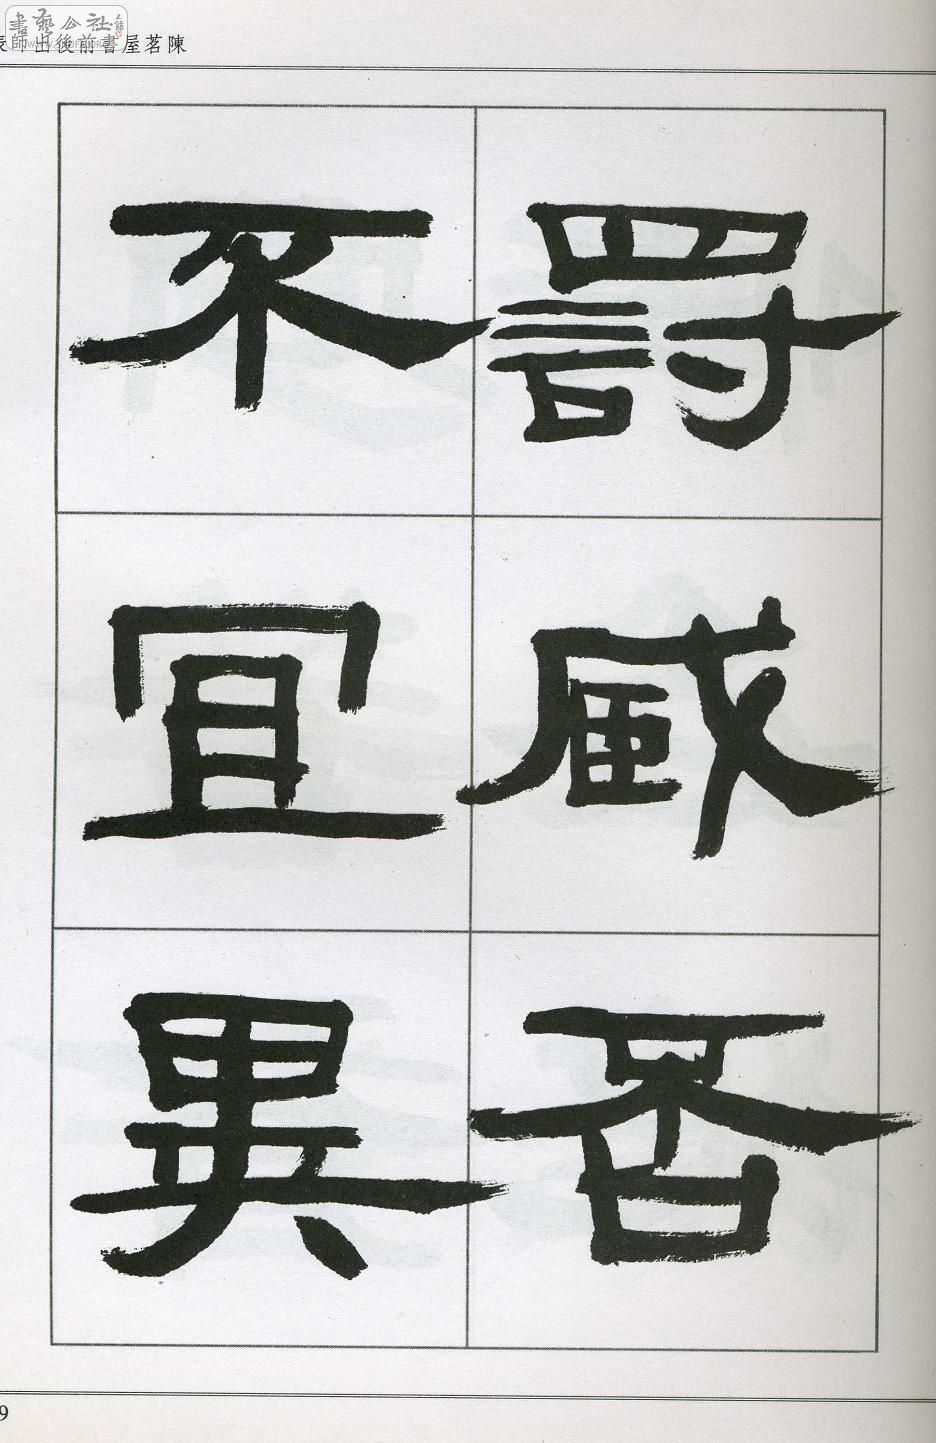 書藝公社
陳茗屋書前後出師表
罰臧否
不宜異
9